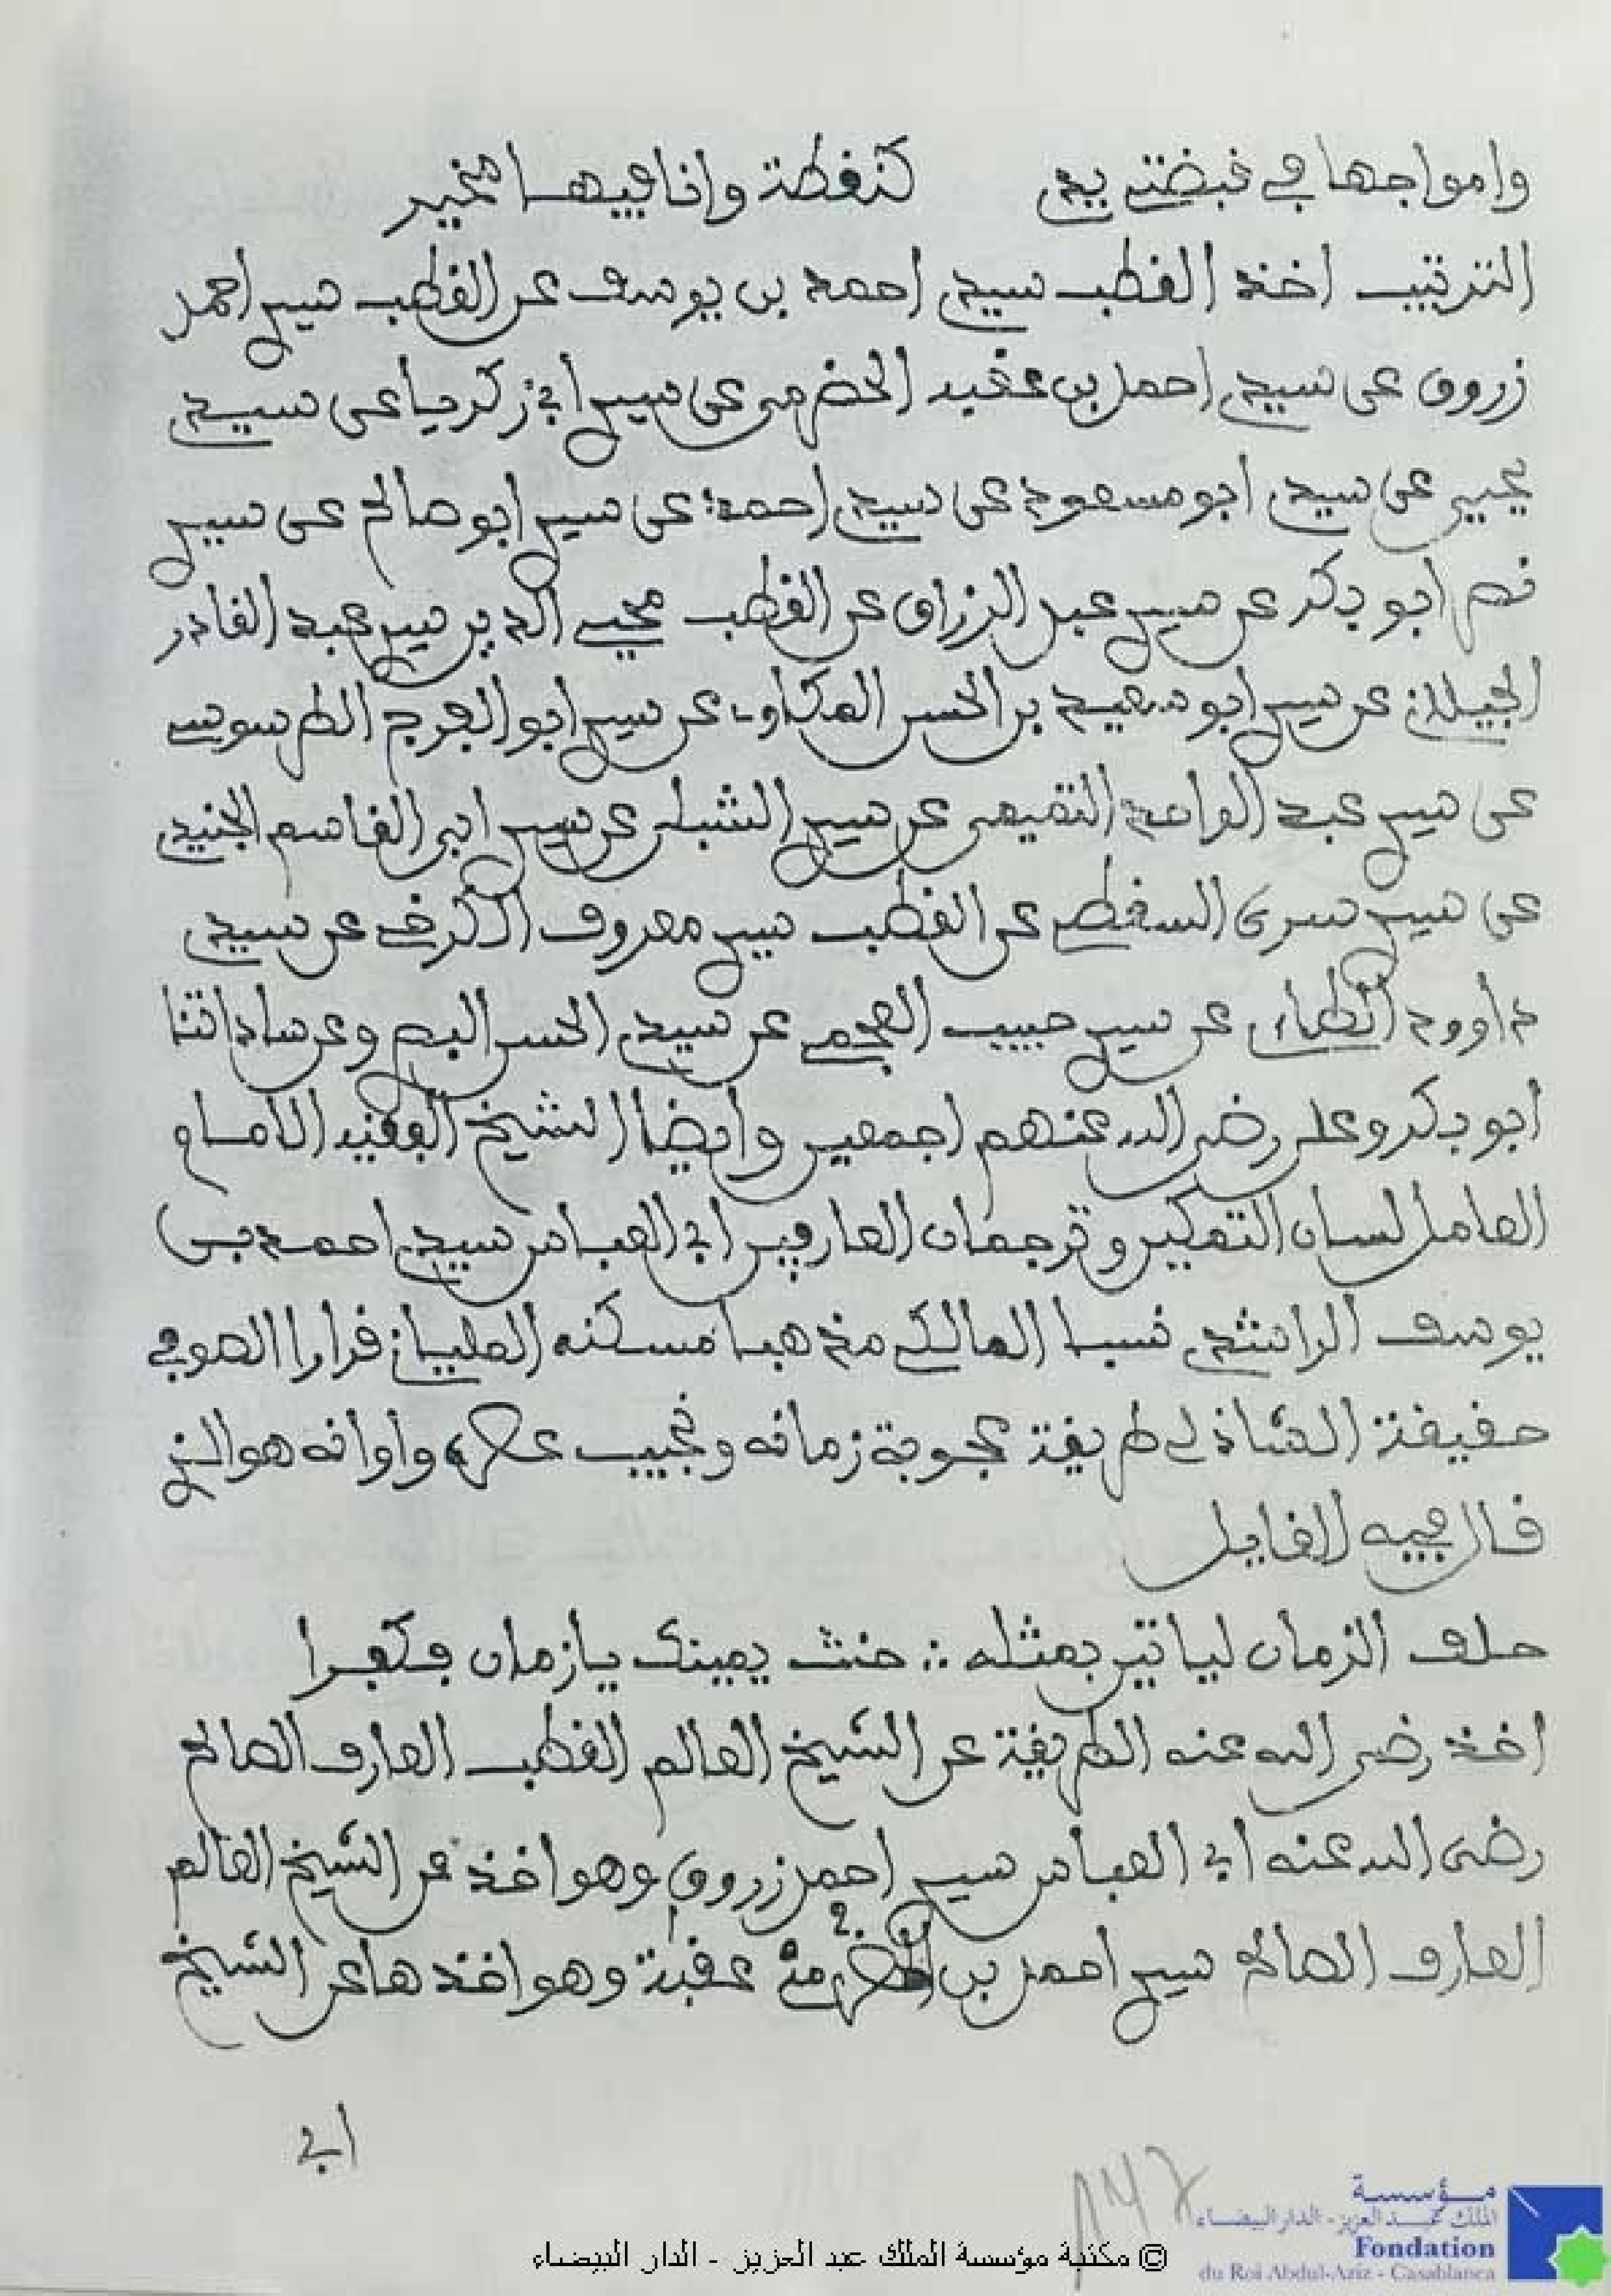 وامواجها في قبضتي يدي كنقطة وانا فيها مخير
الترتيب اخذ القطب سيدي احمد بن يوسف عن القطب سيدي احمد
زروق عن سيدي احمد بن عقبه الحضرمي عن سيدي أبي زكرياء عن سيدي
يحيى عن سيدي ابو مسعود عن سيدي احمد عن سيدي ابو صالح عن سيدي
نصر ابو بكر عن سيدي عبد الرزاق عن القطب محيي الدين سيدي عبد القادر
الجيلاني عن سيدي ابو سعيد بن الحسن عن سيدي ابو الفرج الطرسوسي
عن سيدي عبد الواحد التميمي عن سيدي الشبلي عن سيدي ابي القاسم الجنيد
عن سيدي سرى السقطي عن القطب سيدي معروف الكرخي عن سيدي
داوود الطاءي عن سيدي حبيب العجمي عن سيدي الحسن البصري وعن ساداتنا
أبو بكر وعلي رضي الله عنهم اجمعين وأيضا الشيخ الفقيه الامام
العامل لسان المتكلمين وترجمان العارفين ابي العباس سيدي احمد بن
يوسف الراشدي نسبا المالكي مذهبا مسكنه المليان قرارا الصوفي
حقيقة الشاذلي طريقة عجوبة زمانه ونجيب عصره وأوانه هو الذي
قال فيه القايل
حلف الزمان لياتين بمثله ∴ حنث يمينك يا زمان فكفرا
اخذ رضي الله عنه الطريقة عن الشيخ العالم القطب العارف الصالح
رضى الله عنه ابي العباس سيدي احمد زروق وهو اخذ عن الشيخ العالم
العارف الصالح سيدي احمد بن الحضرمي عقبة وهو اخذها عن الشيخ
ابي
147
مؤسسة
الملك عبد العزيز - الدار البيضاء
Fondation
du Roi Abdul-Aziz - Casablanca
© مكتبة مؤسسة الملك عبد العزيز - الدار البيضاء